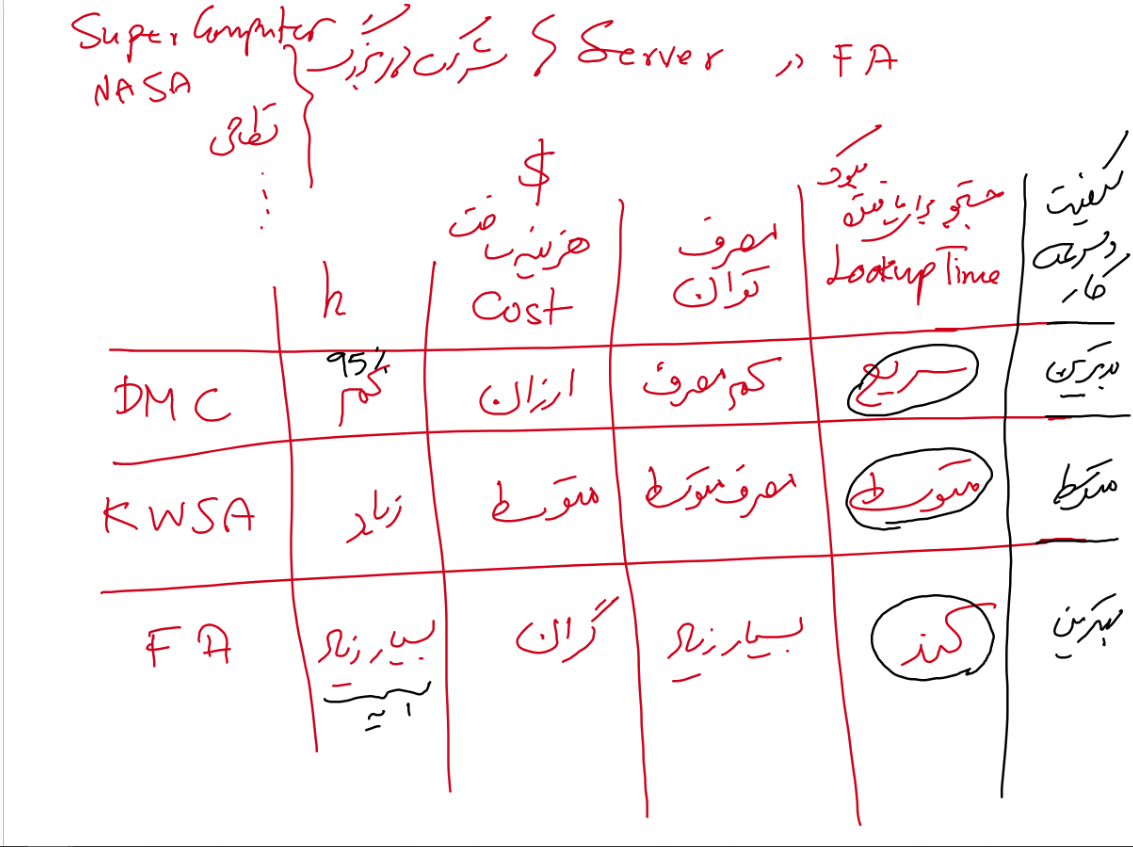 FA در Server و شرکت های بزرگ
Super Computer
NASA
نظامی
h
$
هزینه ساخت
Cost
مصرف
توان
جستجو برای یافتن
بلوک
Lookup Time
کیفیت
و سرعت
کار
DMC
95%
کم
ارزان
کم مصرف
سریع
بدترین
KWSA
زیاد
متوسط
مصرف متوسط
متوسط
متوسط
FA
بسیار زیاد
گران
بسیار زیاد
کند
بهترین
≈ 1